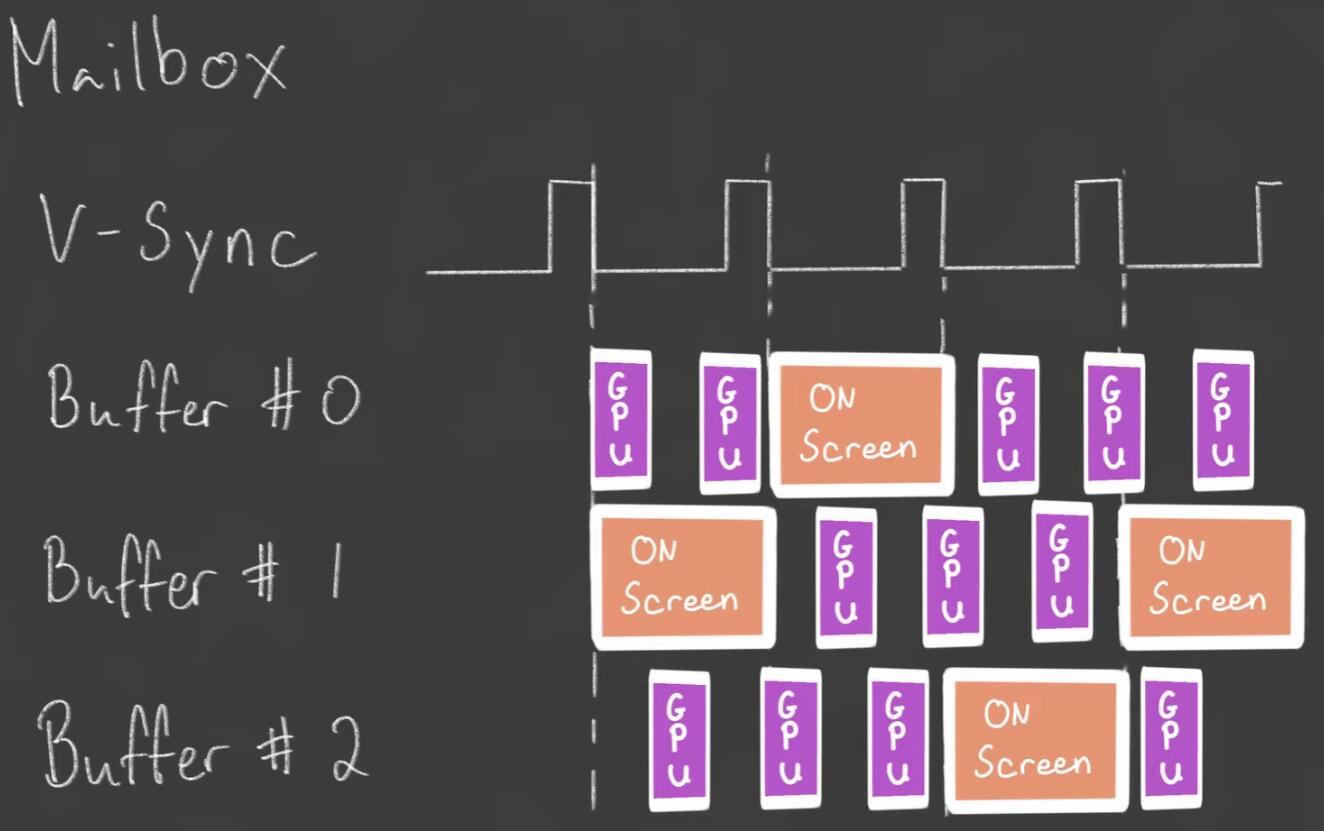 Mailbox
V-Sync
Buffer #0
GPU
GPU
ON
Screen
GPU
GPU
GPU
Buffer # 1
ON
Screen
GPU
GPU
GPU
ON
Screen
Buffer # 2
GPU
GPU
GPU
ON
Screen
GPU